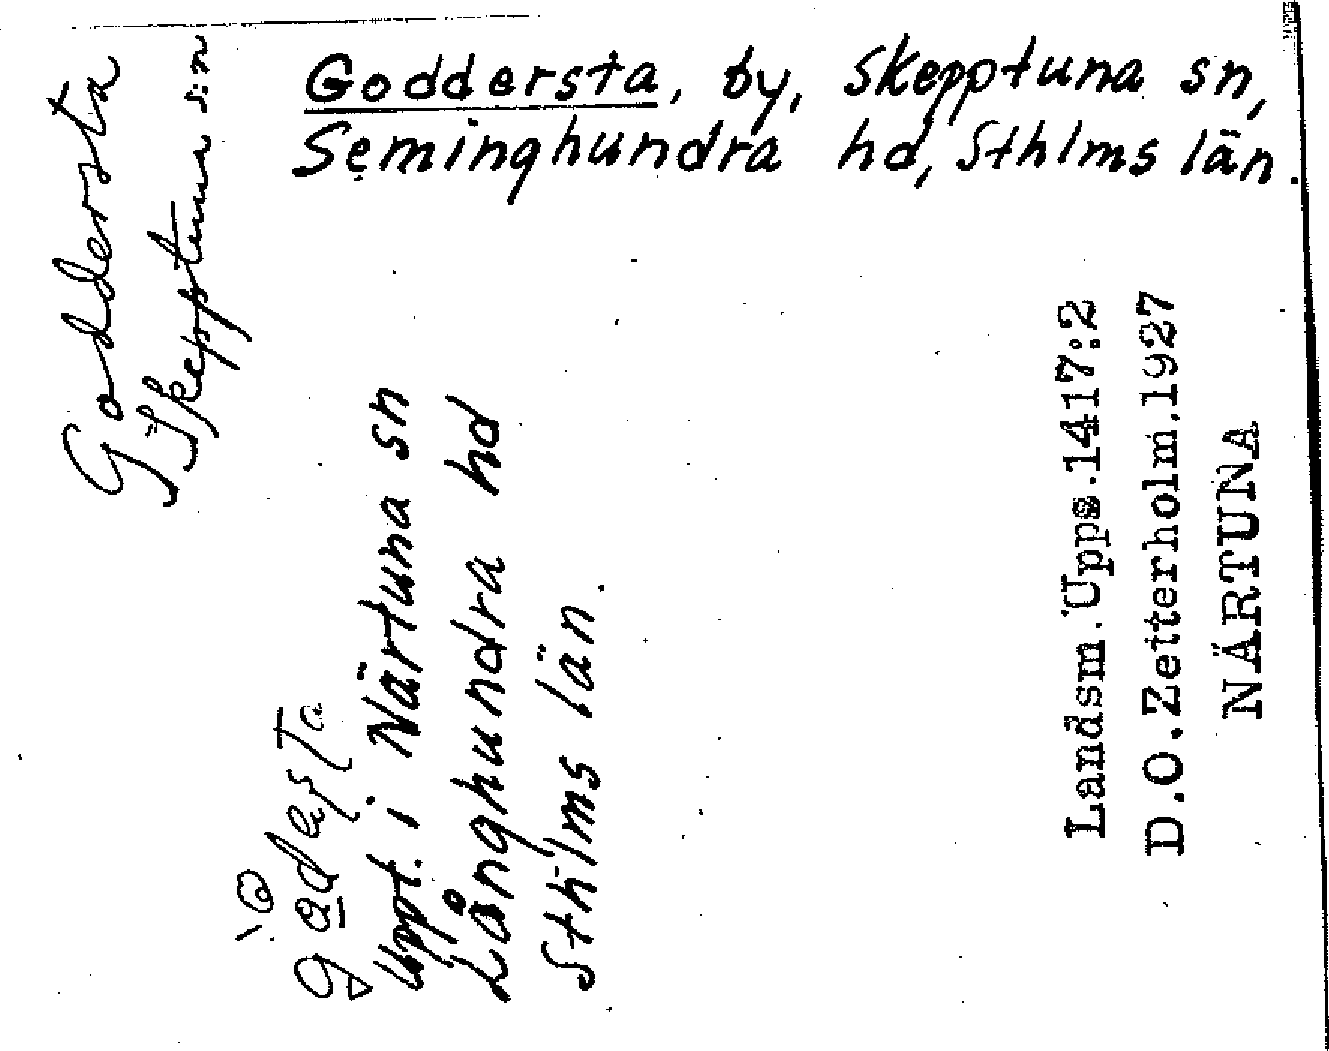 Goddersta, by, Skepptuna sn,
Seminghundra hd, Sthlms län.
Goddersta
Skepptuna sn
Uppt. i Närtuna sn
Långhundra hd
Sthlms län.
Landsm.Upps.1417:2
D.O.Zetterholm.1927
NÄRTUNA